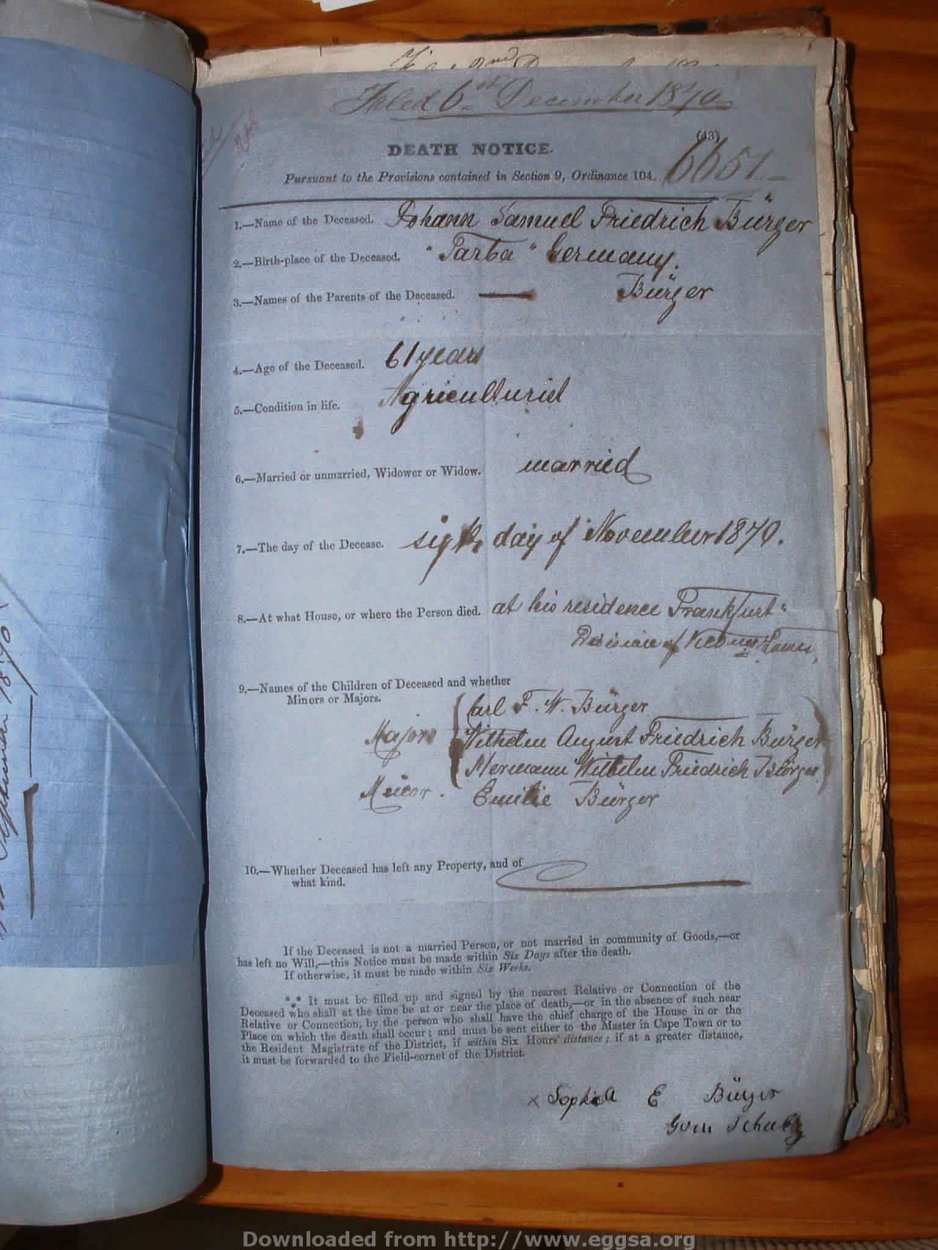 Filed 6th December 1870
(43)
DEATH NOTICE.
6651
Pursuant to the Provisions contained in Section 9, Ordinance 104.
1.—Name of the Deceased. Johann Samuel Friedrich Bürger
2.—Birth-place of the Deceased. "Tarba" Germany.
3.—Names of the Parents of the Deceased. — Bürger
4.—Age of the Deceased. 61 years
5.—Condition in life. Agriculturist
6.—Married or unmarried, Widower or Widow. married
7.—The day of the Decease. day of November 1870.
8.—At what House, or where the Person died. at his residence Frankfurt"
Division of
9.—Names of the Children of Deceased and whether
Minors or Majors.
Carl F. W. Bürger
Majors Wilhelm August Friedrich Bürger
Hermann Wilhelm Friedrich Bürger
Minor. Emilie Bürger
10.—Whether Deceased has left any Property, and of
what kind.
If the Deceased is not a married Person, or not married in community of Goods,—or
has left no Will,—this Notice must be made within Six Days after the death.
If otherwise, it must be made within Six Weeks.
*** It must be filled up and signed by the nearest Relative or Connection of the
Deceased who shall at the time be at or near the place of death,—or in the absence of such near
Relative or Connection, by the person who shall have the chief charge of the House in or the
Place on which the death shall occur; and must be sent either to the Master in Cape Town or to
the Resident Magistrate of the District, if within Six Hours' distance; if at a greater distance,
it must be forwarded to the Field-cornet of the District.
x Sophia E Bürger
Schultz
Downloaded from http://www.eggsa.org